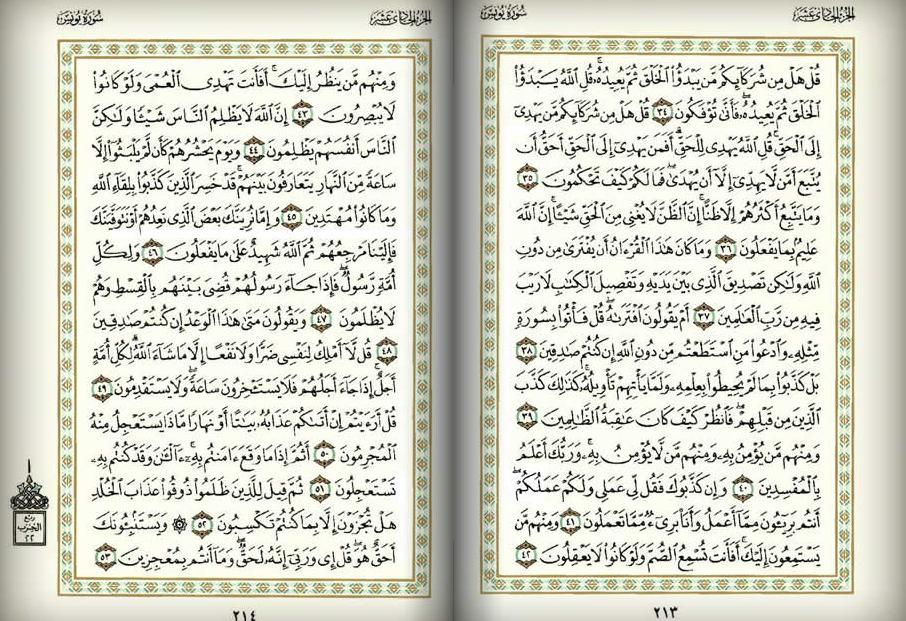 الجزء الحادي عشر
سورة يونس
قُلْ هَلْ مِن شُرَكَآئِكُم مَّن يَبْدَؤُا۟ ٱلْخَلْقَ ثُمَّ يُعِيدُهُۥ ۚ قُلِ ٱللَّهُ يَبْدَؤُا۟
ٱلْخَلْقَ ثُمَّ يُعِيدُهُۥ ۖ فَأَنَّىٰ تُؤْفَكُونَ ٣٤ قُلْ هَلْ مِن شُرَكَآئِكُم مَّن يَهْدِىٓ
إِلَى ٱلْحَقِّ ۚ قُلِ ٱللَّهُ يَهْدِى لِلْحَقِّ ۗ أَفَمَن يَهْدِىٓ إِلَى ٱلْحَقِّ أَحَقُّ أَن
يُتَّبَعَ أَمَّن لَّا يَهِدِّىٓ إِلَّآ أَن يُهْدَىٰ ۖ فَمَا لَكُمْ كَيْفَ تَحْكُمُونَ ٣٥
وَمَا يَتَّبِعُ أَكْثَرُهُمْ إِلَّا ظَنًّا ۚ إِنَّ ٱلظَّنَّ لَا يُغْنِى مِنَ ٱلْحَقِّ شَيْـًٔا ۚ إِنَّ ٱللَّهَ
عَلِيمٌۢ بِمَا يَفْعَلُونَ ٣٦ وَمَا كَانَ هَٰذَا ٱلْقُرْءَانُ أَن يُفْتَرَىٰ مِن دُونِ
ٱللَّهِ وَلَٰكِن تَصْدِيقَ ٱلَّذِى بَيْنَ يَدَيْهِ وَتَفْصِيلَ ٱلْكِتَٰبِ لَا رَيْبَ
فِيهِ مِن رَّبِّ ٱلْعَٰلَمِينَ ٣٧ أَمْ يَقُولُونَ ٱفْتَرَىٰهُ ۖ قُلْ فَأْتُوا۟ بِسُورَةٍ
مِّثْلِهِۦ وَٱدْعُوا۟ مَنِ ٱسْتَطَعْتُم مِّن دُونِ ٱللَّهِ إِن كُنتُمْ صَٰدِقِينَ ٣٨
بَلْ كَذَّبُوا۟ بِمَا لَمْ يُحِيطُوا۟ بِعِلْمِهِۦ وَلَمَّا يَأْتِهِمْ تَأْوِيلُهُۥ ۚ كَذَٰلِكَ كَذَّبَ
ٱلَّذِينَ مِن قَبْلِهِمْ ۖ فَٱنظُرْ كَيْفَ كَانَ عَٰقِبَةُ ٱلظَّٰلِمِينَ ٣٩
وَمِنْهُم مَّن يُؤْمِنُ بِهِۦ وَمِنْهُم مَّن لَّا يُؤْمِنُ بِهِۦ ۚ وَرَبُّكَ أَعْلَمُ
بِٱلْمُفْسِدِينَ ٤٠ وَإِن كَذَّبُوكَ فَقُل لِّى عَمَلِى وَلَكُمْ عَمَلُكُمْ ۖ
أَنتُم بَرِيٓـُٔونَ مِمَّآ أَعْمَلُ وَأَنَا۠ بَرِىٓءٌ مِّمَّا تَعْمَلُونَ ٤١ وَمِنْهُم مَّن
يَسْتَمِعُونَ إِلَيْكَ ۚ أَفَأَنتَ تُسْمِعُ ٱلصُّمَّ وَلَوْ كَانُوا۟ لَا يَعْقِلُونَ ٤٢
٢١٣
الجزء الحادي عشر
سورة يونس
وَمِنْهُم مَّن يَنظُرُ إِلَيْكَ ۚ أَفَأَنتَ تَهْدِى ٱلْعُمْىَ وَلَوْ كَانُوا۟
لَا يُبْصِرُونَ ٤٣ إِنَّ ٱللَّهَ لَا يَظْلِمُ ٱلنَّاسَ شَيْـًٔا وَلَٰكِنَّ
ٱلنَّاسَ أَنفُسَهُمْ يَظْلِمُونَ ٤٤ وَيَوْمَ يَحْشُرُهُمْ كَأَن لَّمْ يَلْبَثُوٓا۟ إِلَّا
سَاعَةً مِّنَ ٱلنَّهَارِ يَتَعَارَفُونَ بَيْنَهُمْ ۚ قَدْ خَسِرَ ٱلَّذِينَ كَذَّبُوا۟ بِلِقَآءِ ٱللَّهِ
وَمَا كَانُوا۟ مُهْتَدِينَ ٤٥ وَإِمَّا نُرِيَنَّكَ بَعْضَ ٱلَّذِى نَعِدُهُمْ أَوْ نَتَوَفَّيَنَّكَ
فَإِلَيْنَا مَرْجِعُهُمْ ثُمَّ ٱللَّهُ شَهِيدٌ عَلَىٰ مَا يَفْعَلُونَ ٤٦ وَلِكُلِّ
أُمَّةٍ رَّسُولٌ ۖ فَإِذَا جَآءَ رَسُولُهُمْ قُضِىَ بَيْنَهُم بِٱلْقِسْطِ وَهُمْ
لَا يُظْلَمُونَ ٤٧ وَيَقُولُونَ مَتَىٰ هَٰذَا ٱلْوَعْدُ إِن كُنتُمْ صَٰدِقِينَ
٤٨ قُل لَّآ أَمْلِكُ لِنَفْسِى ضَرًّا وَلَا نَفْعًا إِلَّا مَا شَآءَ ٱللَّهُ ۗ لِكُلِّ أُمَّةٍ
أَجَلٌ ۚ إِذَا جَآءَ أَجَلُهُمْ فَلَا يَسْتَـْٔخِرُونَ سَاعَةً ۖ وَلَا يَسْتَقْدِمُونَ ٤٩
قُلْ أَرَءَيْتُمْ إِنْ أَتَىٰكُمْ عَذَابُهُۥ بَيَٰتًا أَوْ نَهَارًا مَّاذَا يَسْتَعْجِلُ مِنْهُ
ٱلْمُجْرِمُونَ ٥٠ أَثُمَّ إِذَا مَا وَقَعَ ءَامَنتُم بِهِۦٓ ۚ ءَآلْـَٰٔنَ وَقَدْ كُنتُم بِهِۦ
تَسْتَعْجِلُونَ ٥١ ثُمَّ قِيلَ لِلَّذِينَ ظَلَمُوا۟ ذُوقُوا۟ عَذَابَ ٱلْخُلْدِ
هَلْ تُجْزَوْنَ إِلَّا بِمَا كُنتُمْ تَكْسِبُونَ ٥٢ ۞ وَيَسْتَنۢبِـُٔونَكَ
أَحَقٌّ هُوَ ۖ قُلْ إِى وَرَبِّىٓ إِنَّهُۥ لَحَقٌّ ۖ وَمَآ أَنتُم بِمُعْجِزِينَ ٥٣
ربع
الحزب
٢٢
٢١٤